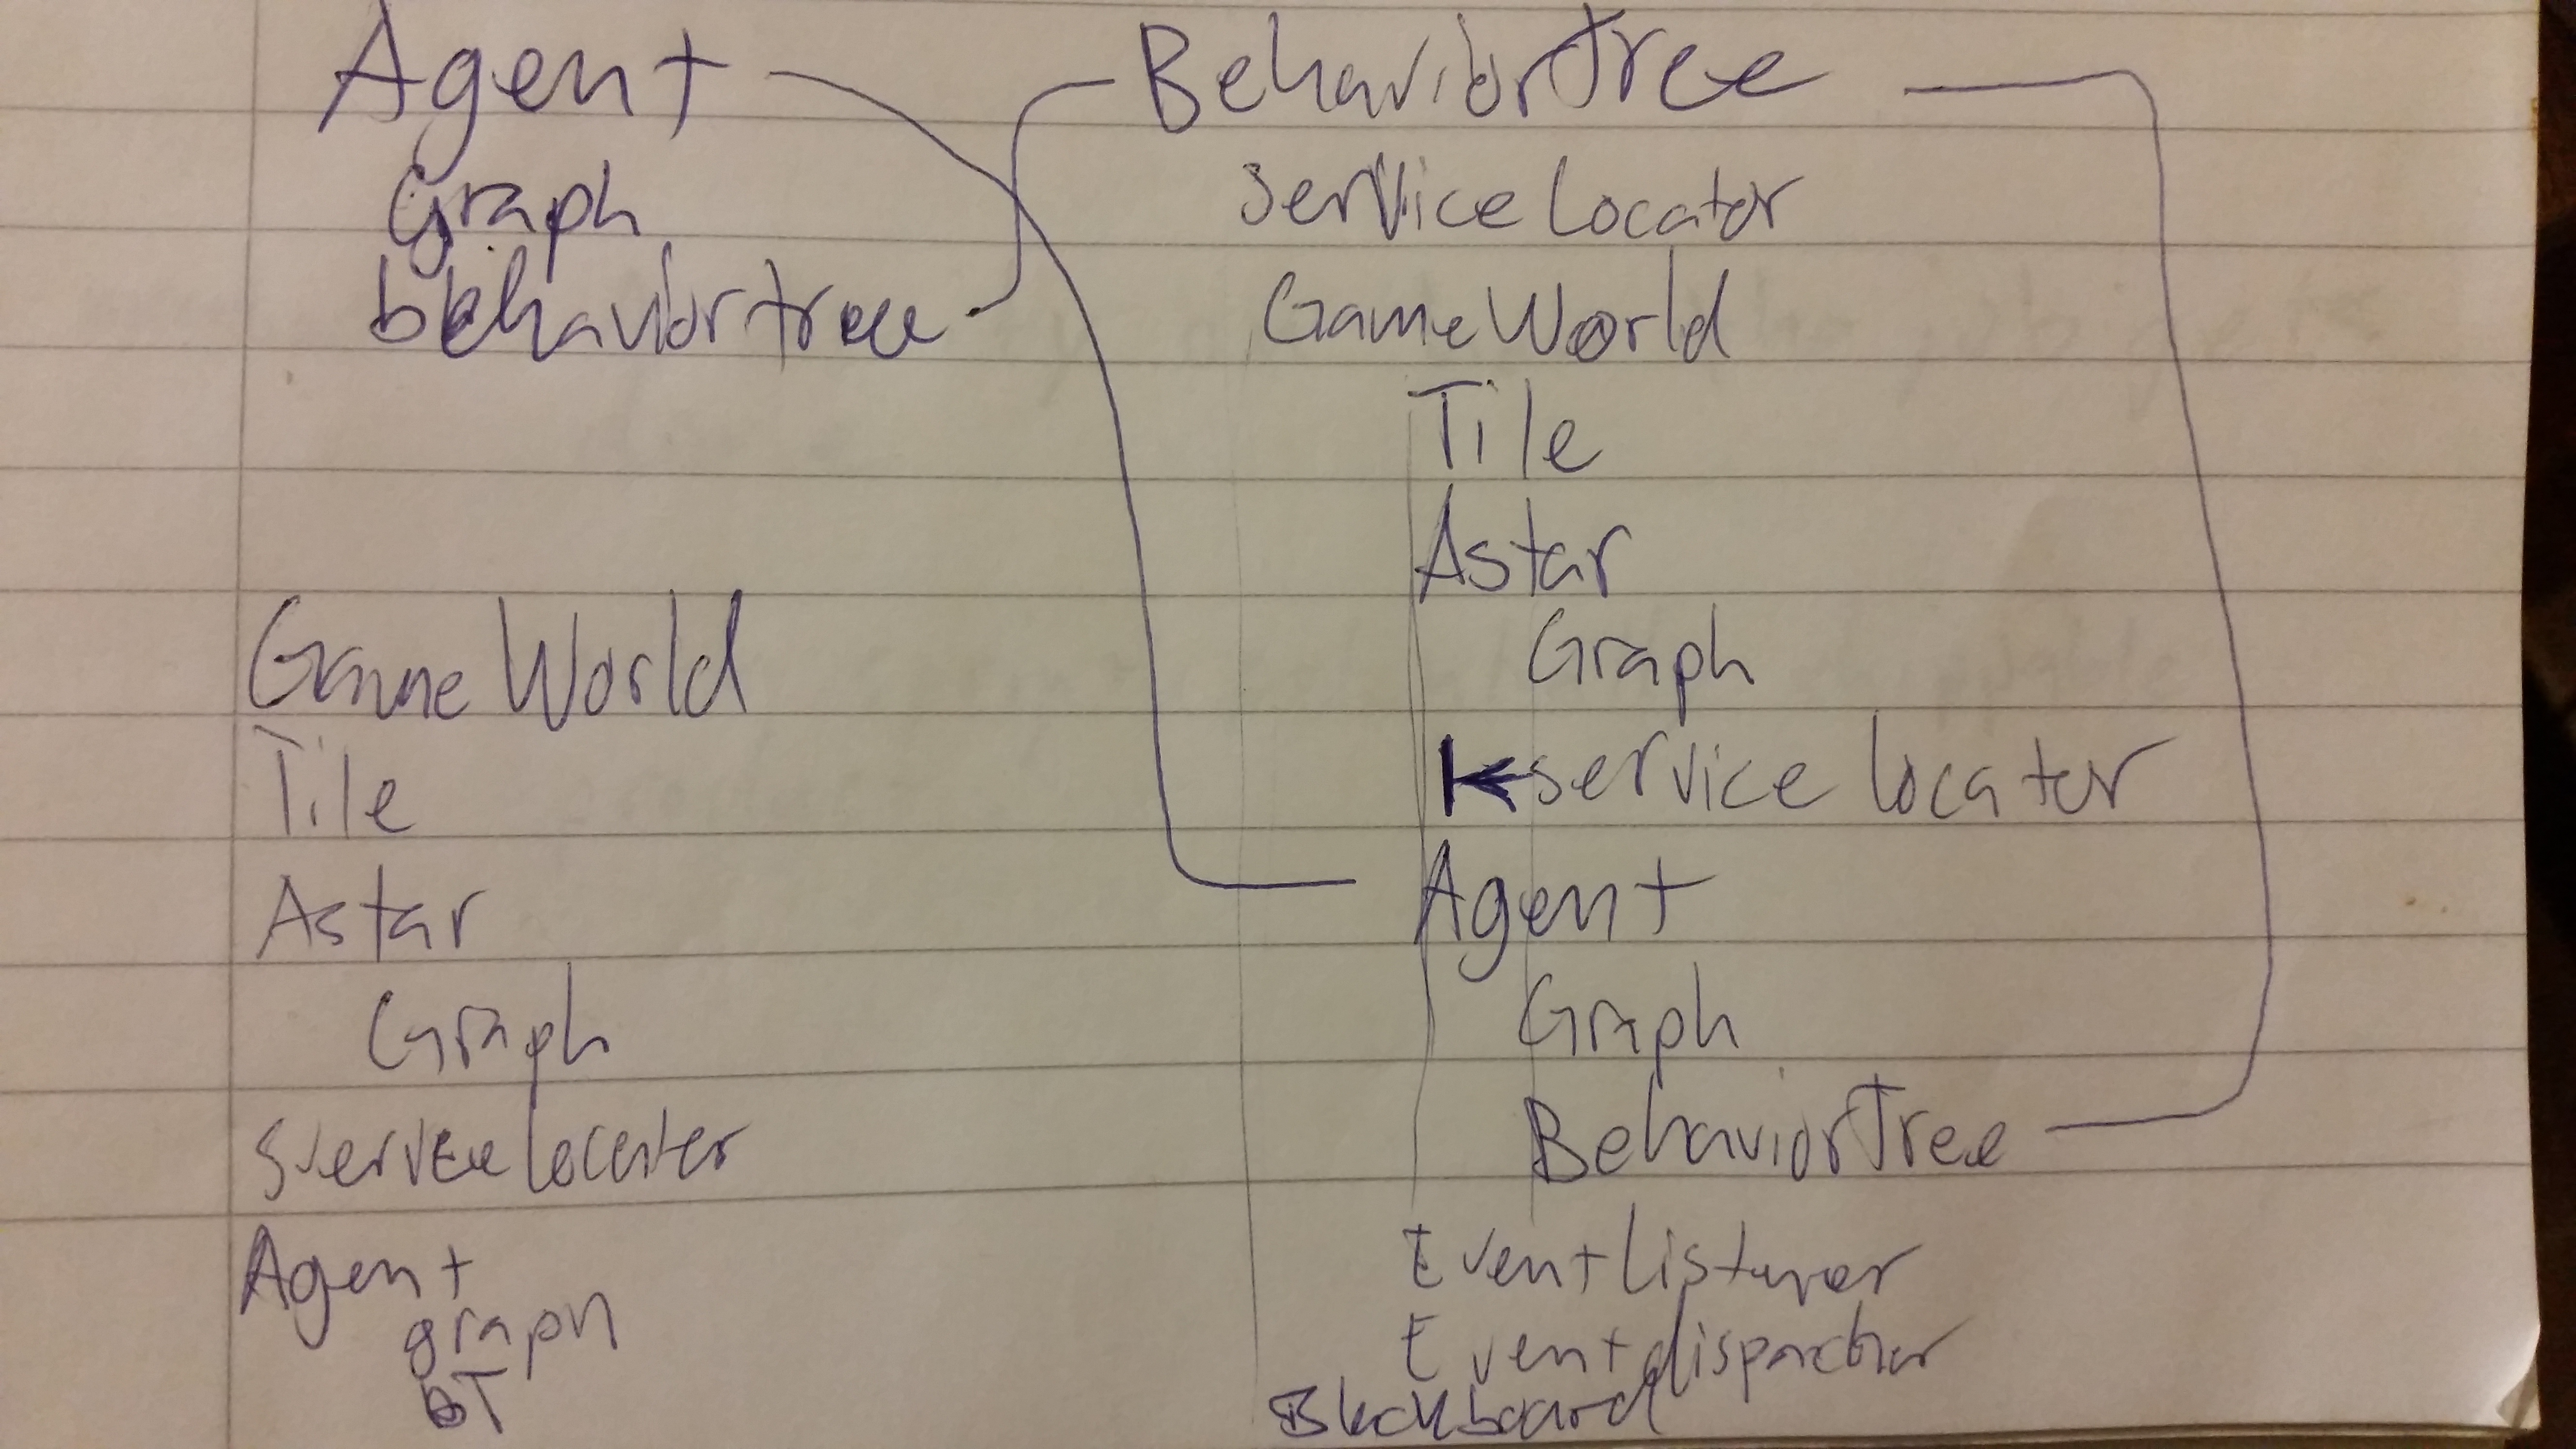 Agent
Graph
behaviortree
GameWorld
Tile
Astar
Graph
Service locater
Agent
graph
bT
BehaviorTree
Service Locator
GameWorld
Tile
Astar
Graph
service locater
Agent
Graph
BehaviorTree
EventListener
Eventdispatcher
Blackboard